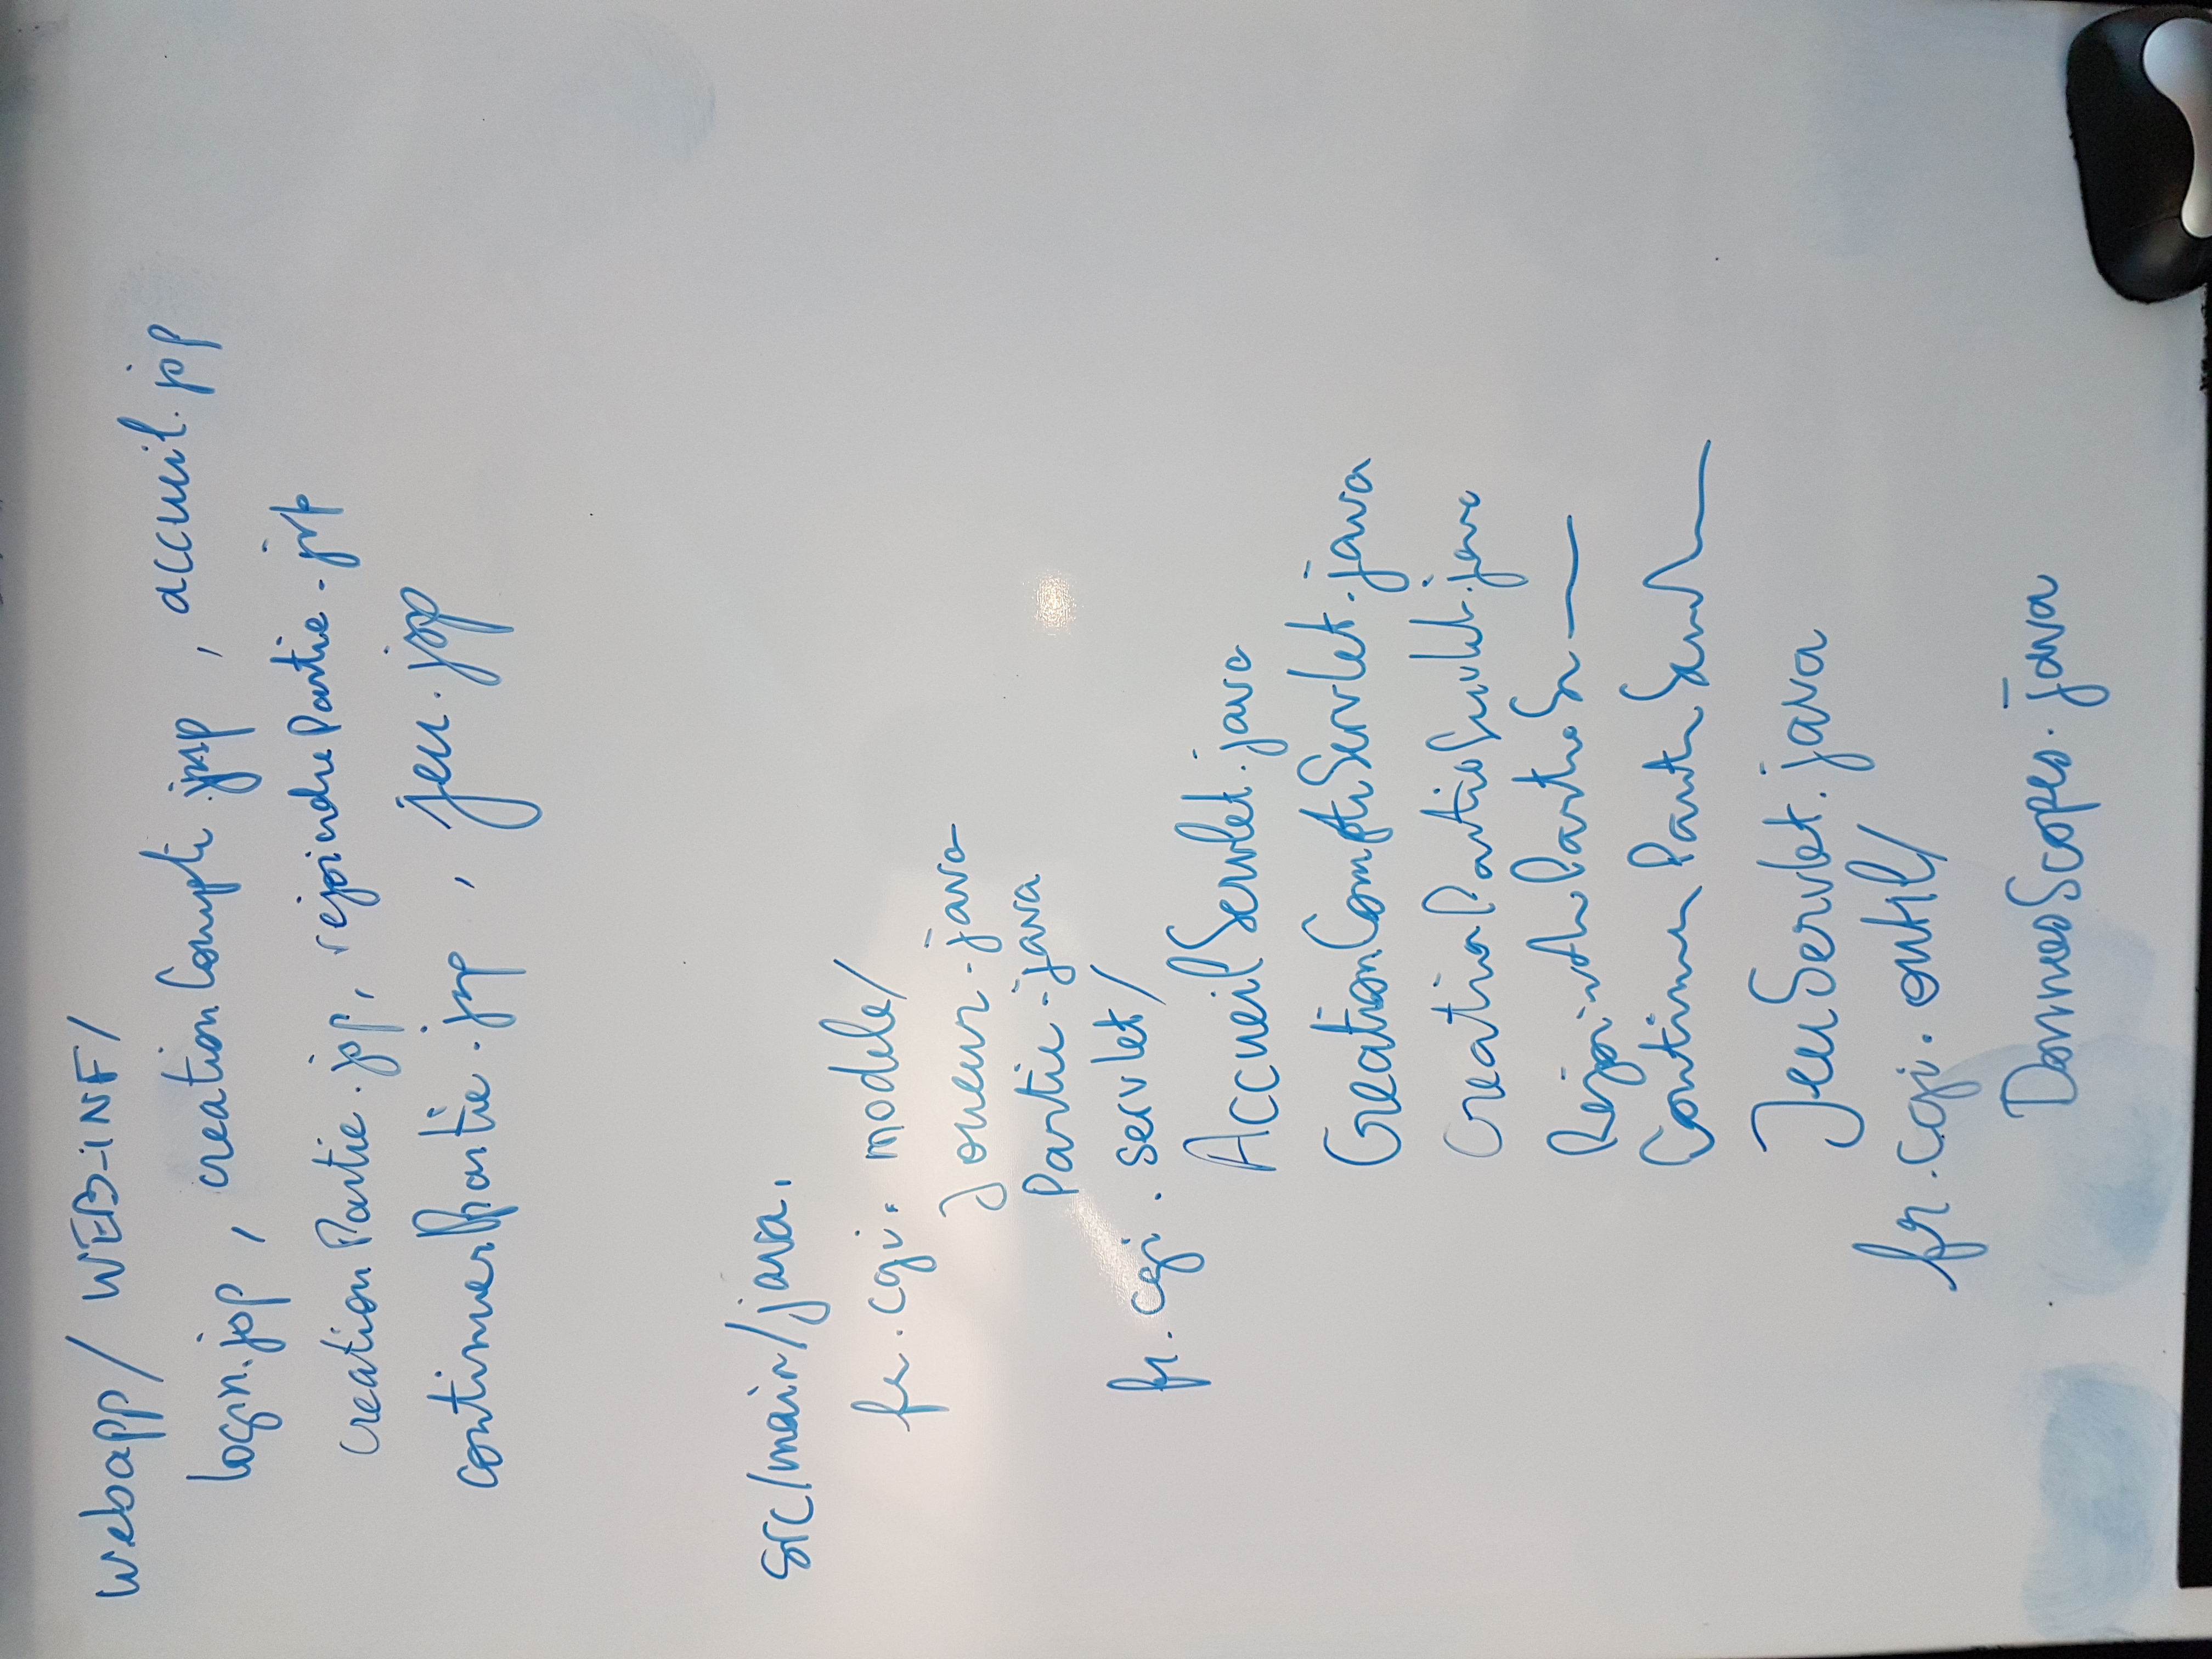 webapp/ WEB-INF/
login.jsp , creationCompte.jsp , accueil.jsp
creationPartie.jsp, rejoindrePartie.jsp
continuerPartie.jsp , jeu.jsp
src/main/java.
fr.cgi. modele/
Joueur.java
Partie.java
fr.cgi. servlet/
AccueilServlet.java
CreationCompteServlet.java
CreationPartieServlet.java
RejoindrePartieS
ContinuerPartieServl
JeuServlet.java
fr.cgi. outil/
DonneesScopes.java